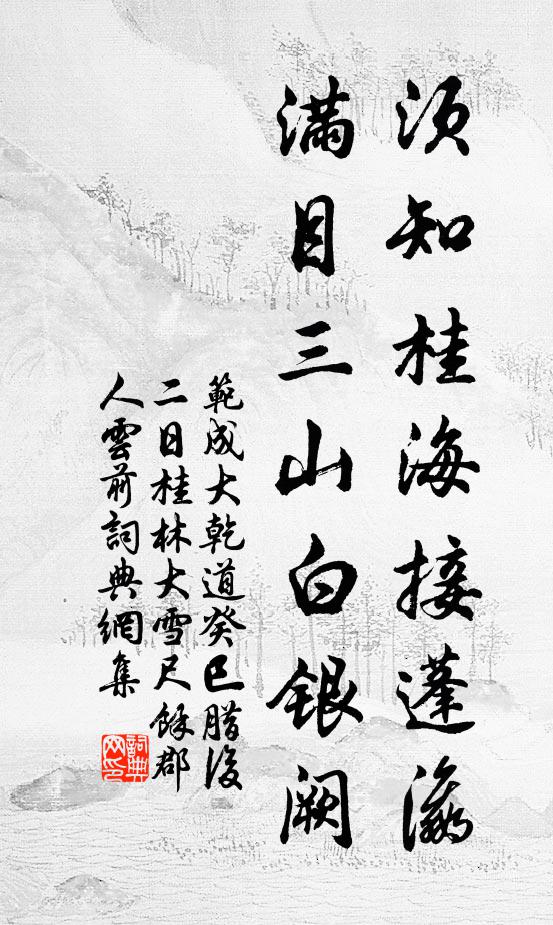 須知桂海接蓬瀛
滿目三山白銀闕
範成大乾道癸巳腊後
二日桂林大雪尺餘郡
人雲前詞典網集
詞典
网印